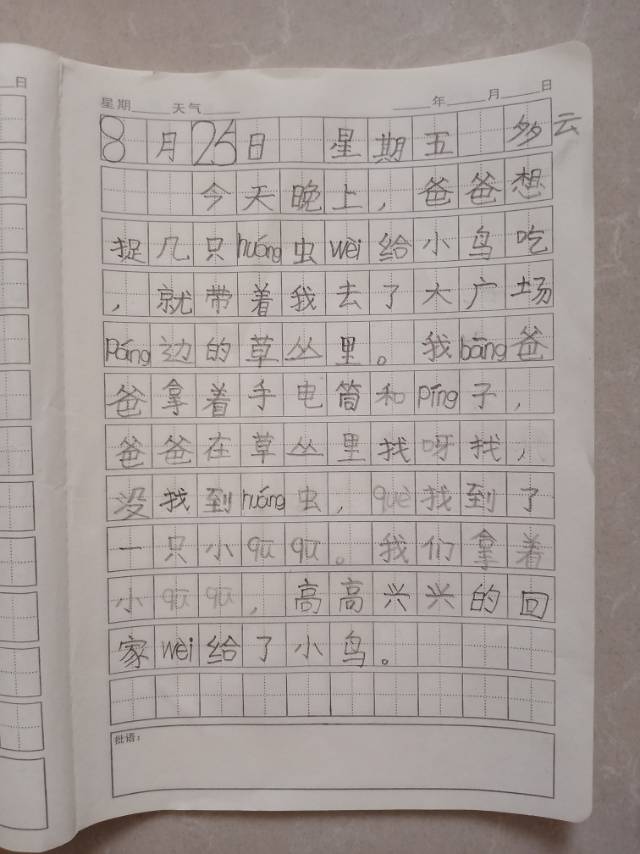 日
星期 天气 年 月 日
8月25日 星期五 多云
今天晚上，爸爸想
捉几只huáng虫wèi给小鸟吃
，就带着我去了大广场
páng边的草丛里。我bāng爸
爸拿着手电筒和píng子，
爸爸在草丛里找呀找，
没找到huáng虫，què找到了
一只小qū qū。我们拿着
小qū qū，高高兴兴的回
家wèi给了小鸟。
批语：